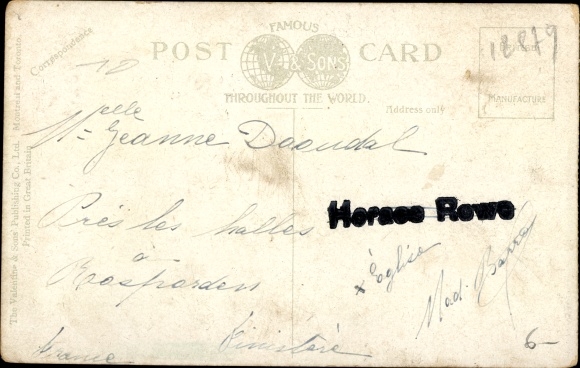 FAMOUS
POST CARD
V. & SONS
THROUGHOUT THE WORLD.
Correspondence
Address only
MANUFACTURE
The Valentine & Sons' Publishing Co., Ltd. Montreal and Toronto.
Printed in Great Britain
12879
10
Melle Jeanne Daoudal
Près les halles
à
Rosporden
Finistère
France
Horace Rowe
x Église
Mad. Barra
6-